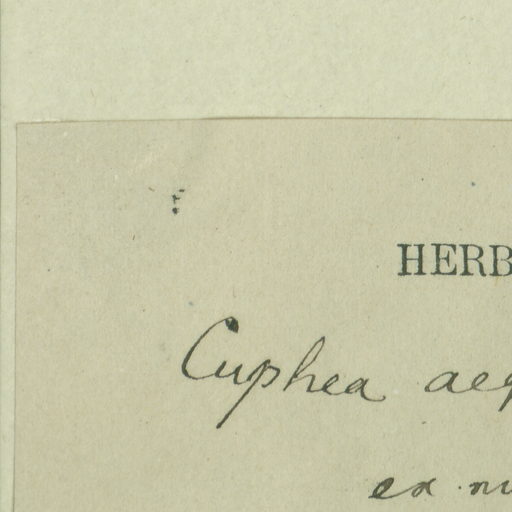 HERB
Cuphea aeq
ex nu